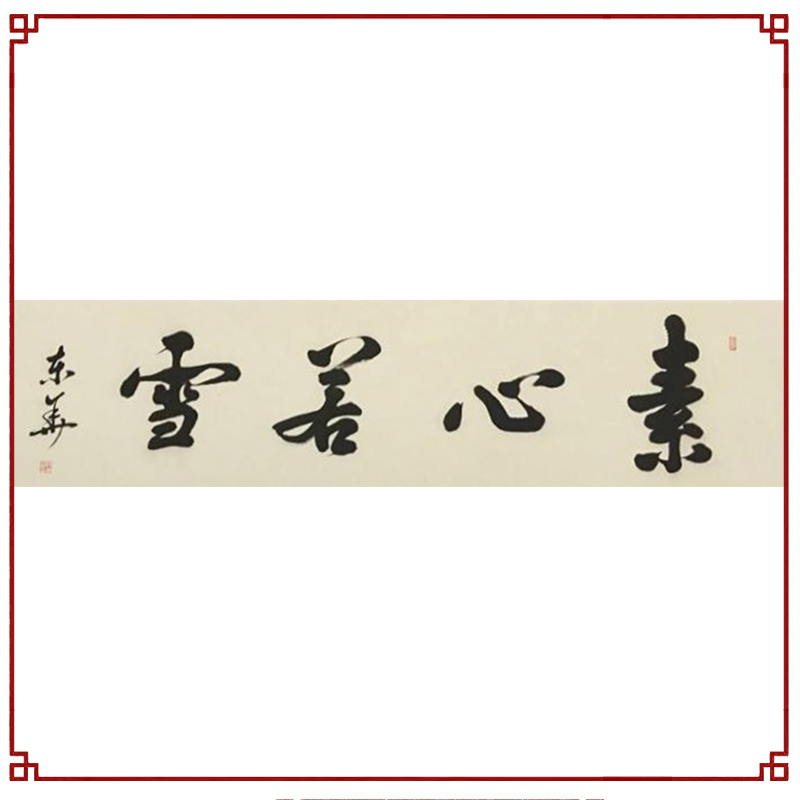 素心若雪
东华